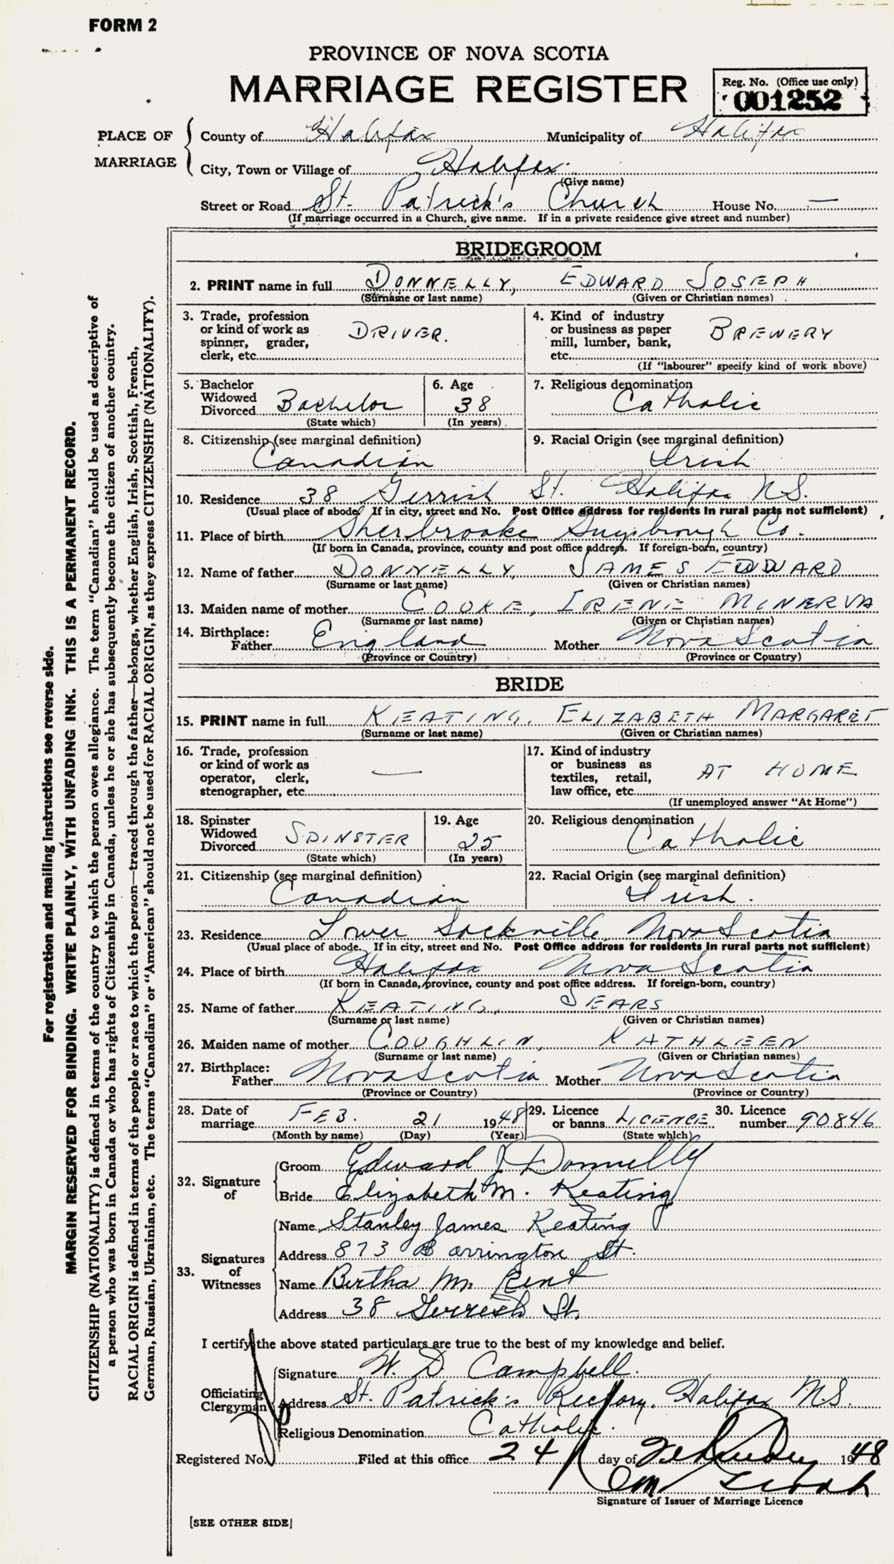 FORM 2
PROVINCE OF NOVA SCOTIA
MARRIAGE REGISTER
Reg. No. (Office use only)
001252
PLACE OF MARRIAGE
County of Halifax Municipality of Halifax
City, Town or Village of Halifax
(Give name)
Street or Road St. Patrick's Church House No. —
(If marriage occurred in a Church, give name. If in a private residence give street and number)
BRIDEGROOM
2. PRINT name in full DONNELLY, EDWARD JOSEPH
(Surname or last name) (Given or Christian names)
3. Trade, profession or kind of work as spinner, grader, clerk, etc. DRIVER.
4. Kind of industry or business as paper mill, lumber, bank, etc. BREWERY
(If "labourer" specify kind of work above)
5. Bachelor Widowed Divorced Bachelor
(State which)
6. Age 38
(In years)
7. Religious denomination Catholic
8. Citizenship (see marginal definition) Canadian
9. Racial Origin (see marginal definition) Irish
10. Residence 38 Gerrish St. Halifax N.S.
(Usual place of abode. If in city, street and No. Post Office address for residents in rural parts not sufficient)
11. Place of birth Sherbrooke Guysbrough Co.
(If born in Canada, province, county and post office address. If foreign-born, country)
12. Name of father DONNELLY, JAMES EDWARD
(Surname or last name) (Given or Christian names)
13. Maiden name of mother COOKE, IRENE MINERVA
(Surname or last name) (Given or Christian names)
14. Birthplace: Father England Mother Nova Scotia
(Province or Country) (Province or Country)
BRIDE
15. PRINT name in full KEATING, ELIZABETH MARGARET
(Surname or last name) (Given or Christian names)
16. Trade, profession or kind of work as operator, clerk, stenographer, etc. —
17. Kind of industry or business as textiles, retail, law office, etc. AT HOME
(If unemployed answer "At Home")
18. Spinster Widowed Divorced SPINSTER
(State which)
19. Age 25
(In years)
20. Religious denomination Catholic
21. Citizenship (see marginal definition) Canadian
22. Racial Origin (see marginal definition) Irish.
23. Residence Lower Sackville, Nova Scotia
(Usual place of abode. If in city, street and No. Post Office address for residents in rural parts not sufficient)
24. Place of birth Halifax Nova Scotia
(If born in Canada, province, county and post office address. If foreign-born, country)
25. Name of father KEATING, SEARS
(Surname or last name) (Given or Christian names)
26. Maiden name of mother COUGHLIN, KATHLEEN
(Surname or last name) (Given or Christian names)
27. Birthplace: Father Nova Scotia Mother Nova Scotia
(Province or Country) (Province or Country)
28. Date of marriage FEB. 21 1948
(Month by name) (Day) (Year)
29. Licence or banns LICENCE
(State which)
30. Licence number 90846
32. Signature of
Groom Edward J Donnelly
Bride Elizabeth M. Keating
33. Signatures of Witnesses
Name Stanley James Keating
Address 873 Barrington St.
Name Bertha M. Kent
Address 38 Gerrish St.
I certify the above stated particulars are true to the best of my knowledge and belief.
Officiating Clergyman
Signature W. D Campbell.
Address St. Patrick's Rectory, Halifax N.S.
Religious Denomination Catholic.
Registered No. Filed at this office 24 day of February 1948
Signature of Issuer of Marriage Licence
[SEE OTHER SIDE]
For registration and mailing instructions see reverse side.
MARGIN RESERVED FOR BINDING. WRITE PLAINLY, WITH UNFADING INK. THIS IS A PERMANENT RECORD.
CITIZENSHIP (NATIONALITY) is defined in terms of the country to which the person owes allegiance. The term "Canadian" should be used as descriptive of
a person who was born in Canada or who has rights of Citizenship in Canada, unless he or she has subsequently become the citizen of another country.
RACIAL ORIGIN is defined in terms of the people or race to which the person—traced through the father—belongs, whether English, Irish, Scottish, French,
German, Russian, Ukrainian, etc. The terms "Canadian" or "American" should not be used for RACIAL ORIGIN, as they express CITIZENSHIP (NATIONALITY).